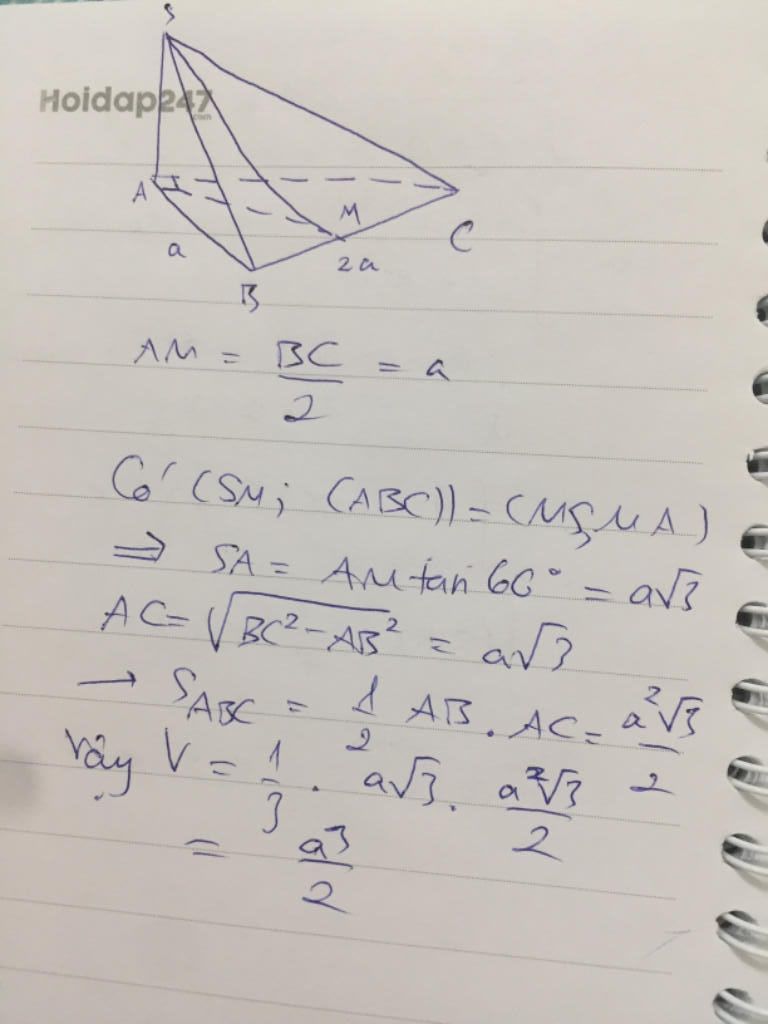 S
Hoidap247
.com
A
M
C
a
2a
B
AM = BC/2 = a
Có (SM; (ABC)) = (MS; MA)
⇒ SA = AM tan 60° = a√3
AC = √(BC² - AB²) = a√3
→ S_ABC = 1/2 AB . AC = a²√3/2
Vậy V = 1/3 . a√3 . a²√3/2
= a³/2